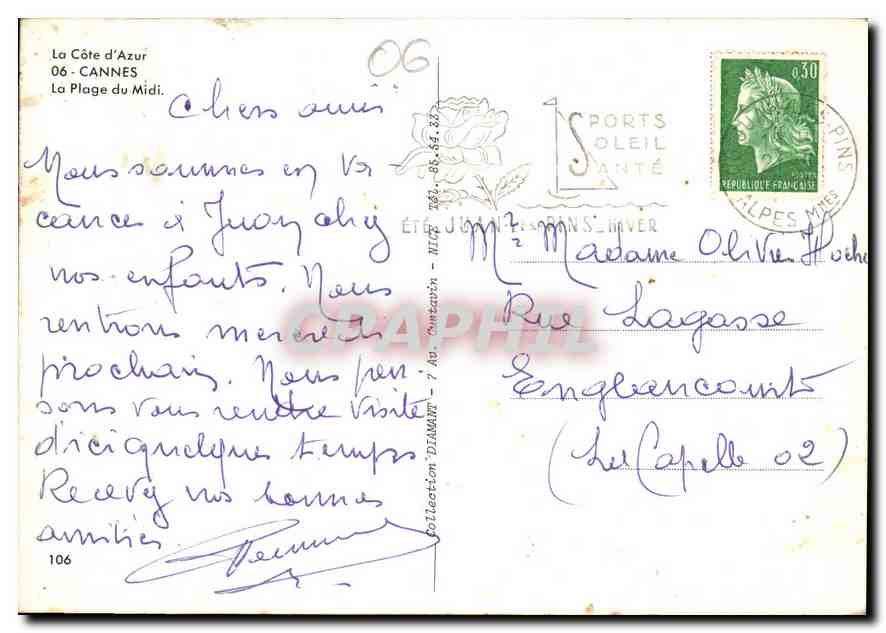 La Côte d'Azur
06 - CANNES
La Plage du Midi.
06
Chers amis
Nous sommes en va-
cances à Juan chez
nos enfants. Nous
rentrons mercredi
prochain. Nous pen
sons vous rendre visite
d'ici quelques temps
Recevez nos bonnes
amitiés.
106
Collection "DIAMANT" - 7 Av. Cantavin - NICE Tél. 85.54.33
SPORTS
SOLEIL
SANTÉ
ÉTÉ JUAN-LES-PINS HIVER
PINS
ALPES MMES
0,30
POSTES
REPUBLIQUE FRANÇAISE
Mr Madame Olivier Hoche
Rue Lagasse
Englancourt
(La Capelle 02)
GRAPHIL